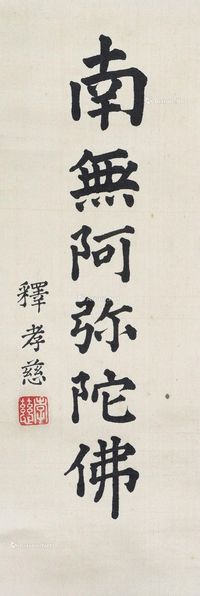 南無阿弥陀佛
釋孝慈
孝慈